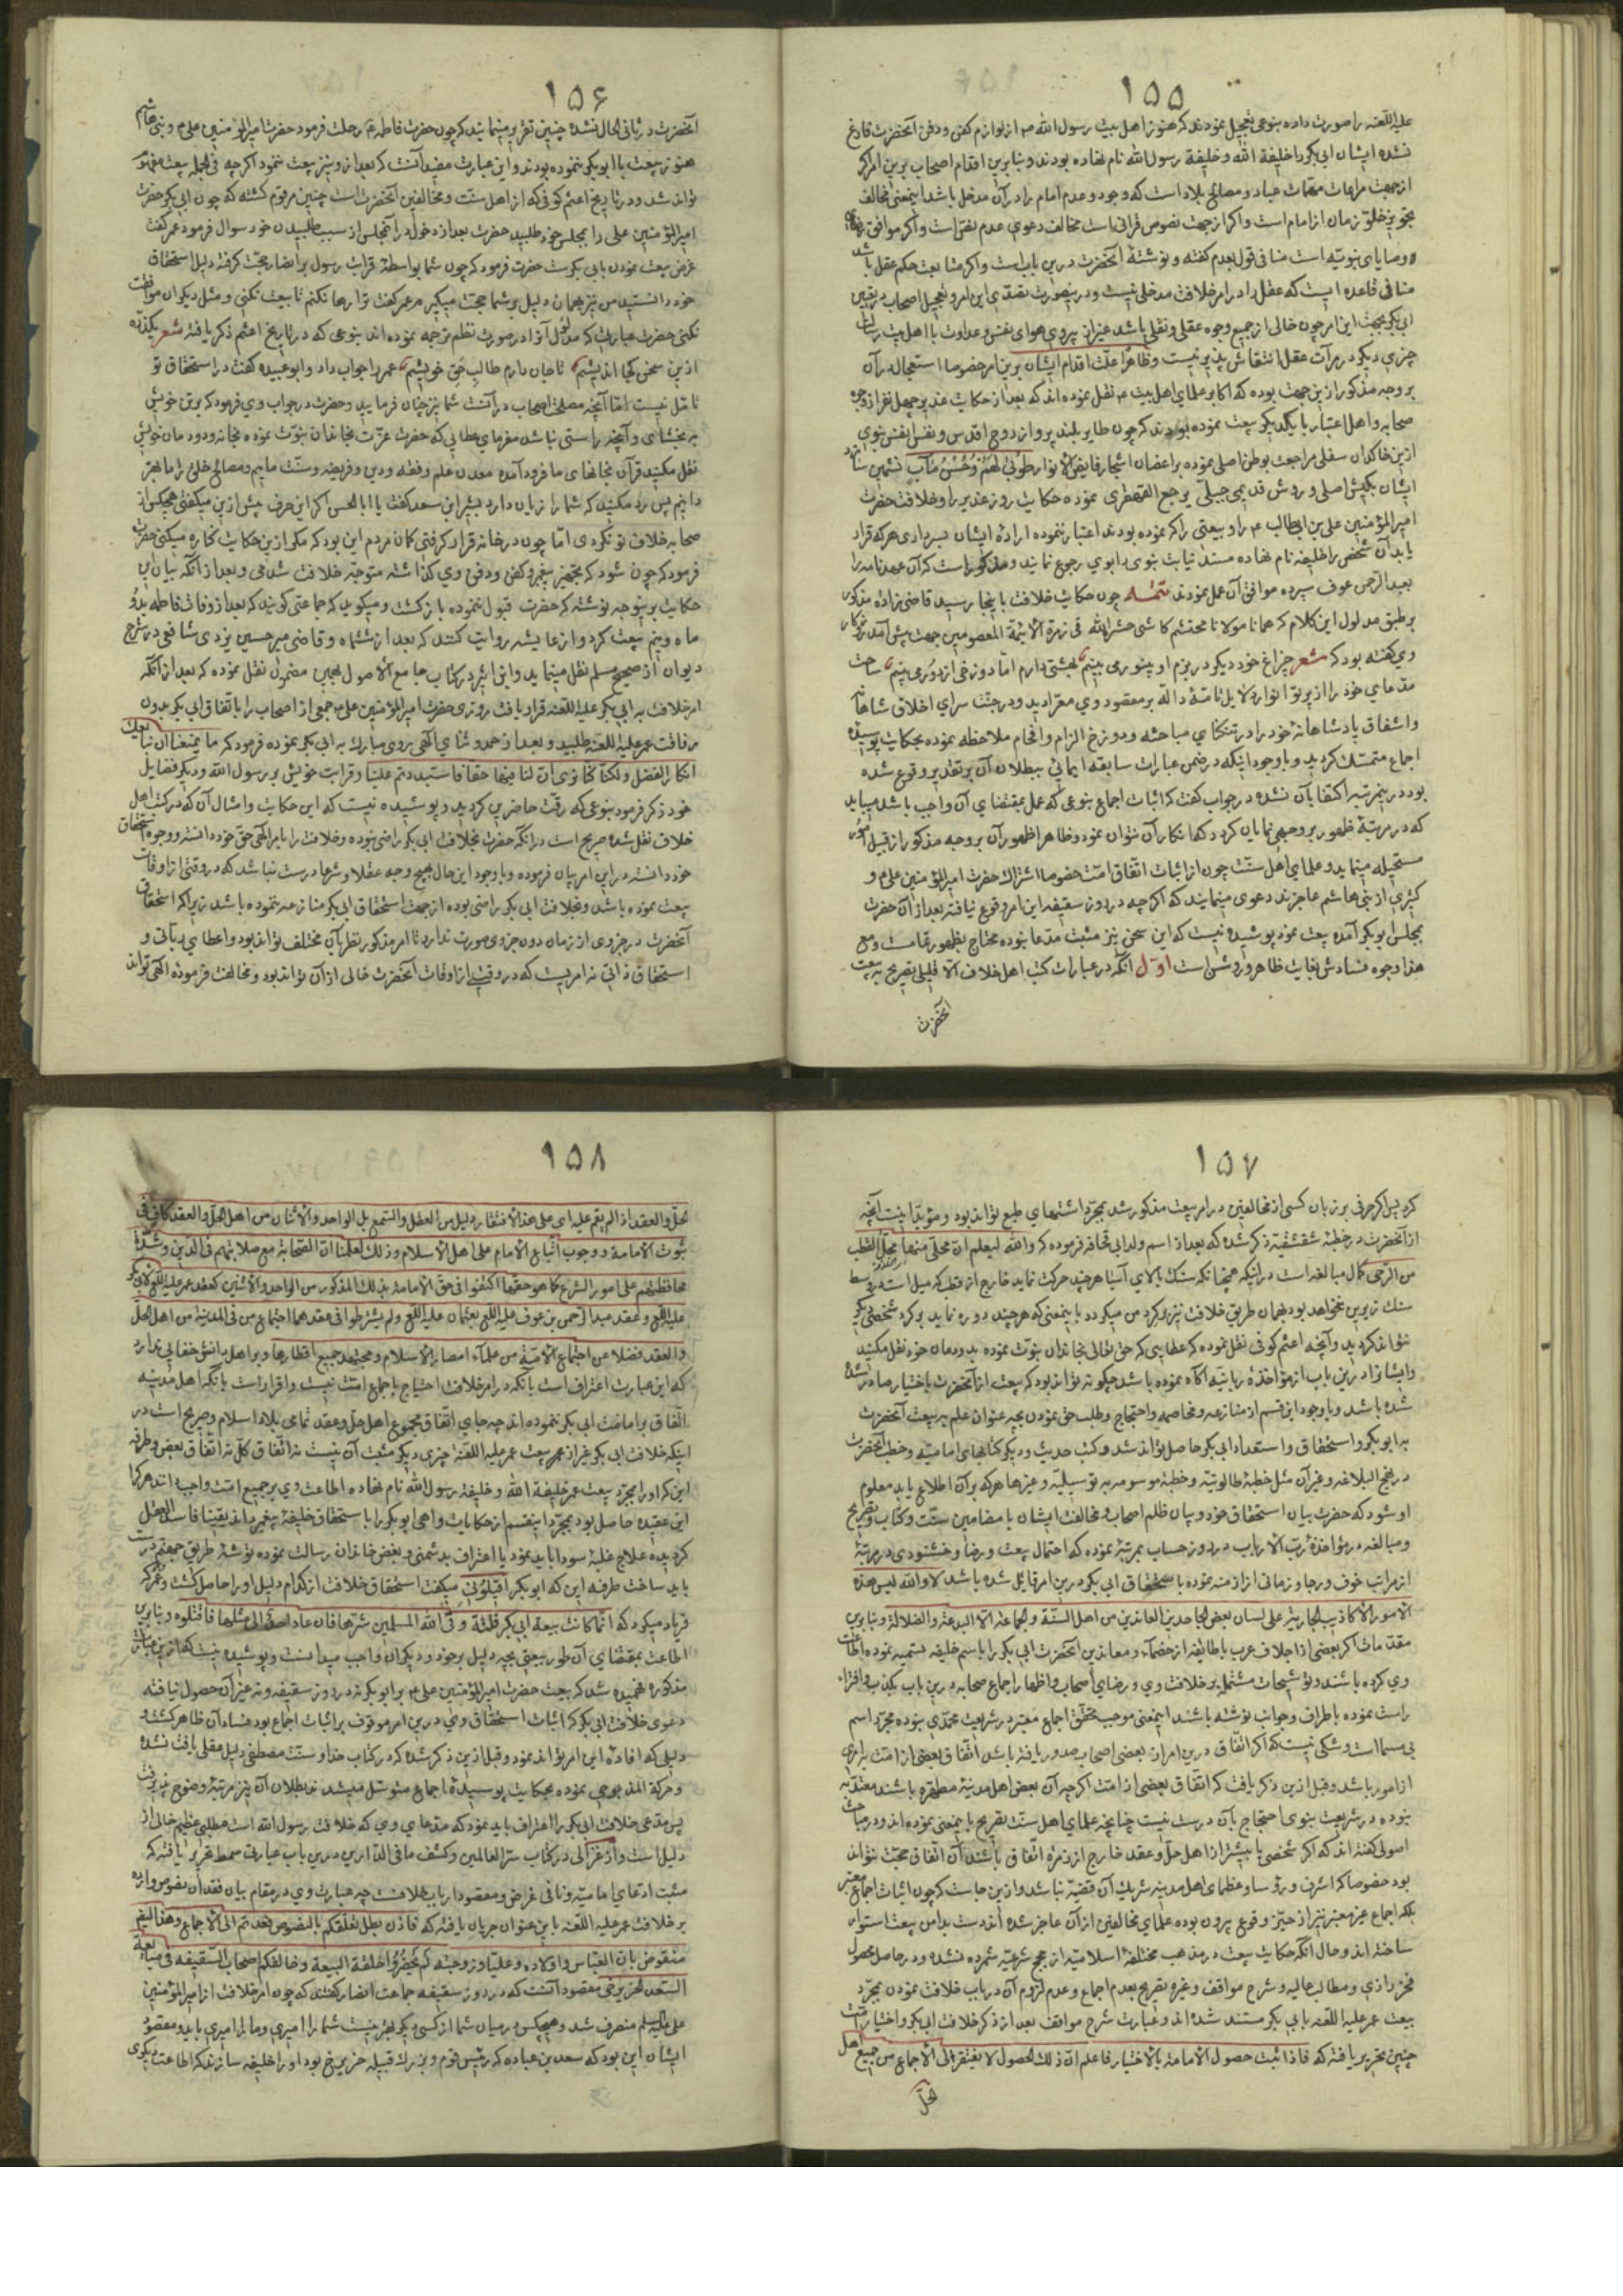 ۱۵۵
علیه اللعنه را صورت داده بنوعی تعجیل نمودند که هنوز اهل بیت رسول الله ص از لوازم کفن و دفن آنحضرت فارغ
نشده ایشان ابی بکر را خلیفة الله و خلیفة رسول الله نام نهاده بودند و بنابرین اقدام اصحاب برین امر اگر
از جهت مراعات مهمات عباد و مصالح بلاد است که وجود و عدم امام را در آن مدخل باشد اینمعنی مخالف
تجویز خلو زمان از امام است و اگر از جهت نصوص قرانی است مخالف دعوی عدم نص است و اگر موافق
و وصایای نبویه است منافی قول بعدم گفته و نوشتهٔ آنحضرت درین باب است و اگر متابعت حکم عقل باشد
منافی قاعده ایست که عقل را در امر خلافت مدخلی نیست و درینصورت تصدی این امر و تعجیل اصحاب در تعیین
ابی بکر بجهت این امر چون خالی از جمیع وجوه عقلی و نقلی باشد غیر از پیروی هوای نفس و عداوت با اهل بیت رسالت
چیزی دیگر در مرآت عقل انتقاش پذیر نیست و ظاهرا علت اقدام ایشان برین امر خصوصا استعجال در آن
بر وجه مذکور ازین جهت بوده که اکابر علمای اهل بیت ع نقل نموده اند که بعد از حکایت غدیر چهل نفر از وجوه
صحابه و اهل اعتبار با یکدیگر بیعت نموده بودند که چون طایر بلند پرواز روح اقدس و نفس انفس نبوی
ازین خاکدان سفلی مراجعت بوطن اصلی نموده بر اغصان اشجار فایض الانوار طُوبیٰ لَهُمْ وَحُسْنُ مَآب نشیمن سازد
ایشان بکیش اصلی و روش قدیمی جبلّی یرجع القهقری نموده حکایت روز غدیر را و خلافت حضرت
امیرالمؤمنین علی بن ابیطالب ع را و بیعتی را که نموده بودند اعتبار ننموده ارادهٔ ایشان بسرداری هر که قرار
یابد آن شخص را خلیفه نام نهاده مسند نیابت نبوی را بوی رجوع نمایند و مذکور است که آن عهدنامه را
بعبدالرحمن عوف سپرده موافق آن عمل نمودند تتمه چون حکایت خلافت باینجا رسید قاضی زاده مذکور
بر طبق مدلول این کلام که همانا مولانا محتشم کاشی حشره الله فی زمرة الائمة المعصومین جهت
وی گفته بود که شعر چراغ خود دیگر در بزم او بینور می بینم بهشتی دارم اما دوزخی از دور می بینم ساحت
مدعای خود را از پرتو انوار دلایل تامهٔ داله بر مقصود وی معرا دید و در جنت سرای اخلاق شاهانه
و اشفاق پادشاهانهٔ خود را در تنکنای مباحثه و دوزخ الزام و افحام ملاحظه نموده بحکایت پوسیدهٔ
اجماع متمسک گردید و با وجود اینکه در ضمن عبارات سابقه ایمائی ببطلان آن بر تقدیر وقوع شده
بود درینمرتبه اکتفا بآن نشده در جواب گفت که اثبات اجماع بنوعی که عمل بمقتضای آن واجب باشد میباید
که در مرتبهٔ ظهور بر وجهی نمایان گردد که انکار آن نتوان نمود و ظاهرا ظهور آن بر وجه مذکور از قبیل امور
مستحیله مینماید و علمای اهل سنت چون از اثبات اتفاق امت خصوصا اشراک حضرت امیرالمؤمنین علی ع و
کثیری از بنی هاشم عاجزند دعوی مینمایند که اگرچه در روز سقیفه این امر وقوع نیافته بعد از آن حضرت
بمجلس ابوبکر آمده بیعت نمود پوشیده نیست که این سخن نیز مثبت مدعا نبوده محتاج بظهور تمامست و مع
هذا وجوه فسادش بغایت ظاهر و روشن است اول آنکه در عبارات کتب اهل خلاف الا قلیلی تصریح به بیعت
آنحضرت
۱۵۶
آنحضرت در ثانی الحال نشده چنین تقریر مینمایند که چون حضرت فاطمه ع رحلت فرمود حضرت امیرالمؤمنین علی ع و بنی هاشم
هنوز بیعت با ابوبکر ننموده بودند و این عبارت مفید آنست که بعد ازو نیز بیعت ننمود اگرچه فی الجمله بیعت
تواند شد و در تاریخ اعثم کوفی که از اهل سنت و مخالفین آنحضرت است چنین مرقوم گشته که چون ابی بکر حضرت
امیرالمؤمنین علی را بمجلس خود طلبید حضرت بعد از دخول در آنمجلس از سبب طلبیدن خود سوال فرمود عمر گفت
غرض بیعت نمودن بابی بکرست حضرت فرمود که چون شما بواسطهٔ قرابت رسول بر انصار حجت گرفته دلیل استحقاق
خود دانستید من نیز بهمان دلیل بر شما حجت میگیرم عمر گفت ترا رها نکنم تا بیعت نکنی و مثل دیگران موافقت
نکنی حضرت عباراتی که مدلول آنرا در صورت نظم ترجمه نموده اند بنوعی که در تاریخ اعثم ذکر یافته شعر
ازین سخن کجا اندیشم تا جان دارم طالب حق خویشم عمر را جواب داد و ابوعبیده گفت در استحقاق تو
تأمل نیست اما آنچه مصلحت اصحاب در آنست شما نیز چنان فرمایید و حضرت در جواب وی فرمود که برتن خویش
به بخشای و آنچه راستی نباشد مفرمای عطایی که حضرت عزت بخاندان نبوت نموده بخانه و دودمان خویش
نقل مکنید قرآن بخانهای ما فرود آمده معدن علم و فقه و دین و فریضه و سنت ماییم و مصالح خلق را ما بهتر
دانیم پس رد مکنید که شما را زیان دارد بشیر ابن سعد گفت یا ابا الحسن اگر این حرف پیش ازین میگفتی هیچکس از
صحابه خلاف تو نکردی اما چون در خانه قرار گرفتی گمان مردم این بود که مگر ازین حکایت کناره میکنی حضرت
فرمود که چون شود که تجهیز پیغمبر و کفن و دفن وی گذاشته متوجه خلافت شدمی و بعد از آنکه بیان این
حکایت برینوجه نوشته که حضرت قبول ننموده بازگشت و میگوید که جماعتی گویند که بعد از وفات فاطمه بدو
ماه و نیم بیعت کرد و از عایشه روایت کنند که بعد از ششماه و قاضی میر حسین یزدی شافعی در شرح
دیوان از صحیح مسلم نقل مینماید و ابن اثیر در کتاب جامع الاصول بهمین مضمون نقل نموده که بعد از آنکه
امر خلافت به ابی بکر علیه اللعنه قرار یافت روزی حضرت امیرالمؤمنین علی ع جمعی از اصحاب را باتفاق ابی بکر بدون
رفاقت عمر علیه اللعنه طلبید و بعد از حمد و ثنای الهی روی مبارک به ابی بکر نموده فرمود که ما یمنعنا ان نبایعک
انکارا لفضل ولکنا کنا نری ان لنا فیها حقا فاستبددتم علینا و قرابت خویش بر رسول الله و دیگر فضایل
خود ذکر فرمود بنوعی که رقت حاضرین گردید و پوشیده نیست که این حکایت و امثال آن که در کتب اهل
خلاف نقل شده صریح است در آنکه حضرت بخلافت ابی بکر راضی نبوده و خلافت را بامر الهی حق خود دانسته و وجوه استحقاق
خود دانسته در این امر بیان فرموده و با وجود این حال بهیچ وجه عقلا و شرعا درست نباشد که در وقتی از اوقات
بیعت نموده باشد و بخلافت ابی بکر راضی بوده از جهت استحقاق ابی بکر منازعه ننموده باشد زیرا که استحقاق
آنحضرت در جزوی از زمان دون جزوی صورت ندارد تا امر مذکور نظر بآن مختلف تواند بود و اعطای ربانی و
استحقاق ذاتی نه امریست که در وقتی از اوقات آنحضرت خالی از آن تواند بود و مخالفت فرمودهٔ الهی تواند
۱۵۷
کرد پس اگر حرفی بر زبان کسی از مخالفین در امر بیعت مذکور شد بمجرد اشتهای طبع تواند بود و مؤید اینست آنچه
از آنحضرت در خطبهٔ شقشقیه ذکر شده که بعد از اسم ولد ابی قحافه فرموده که والله لیعلم ان محلی منها محل القطب
من الرحی کمال مبالغه است در اینکه همچنانکه سنک بالای آسیا هر چند حرکت نماید خارج از قطب که میل است
سنک زیرین نخواهد بود بهمان طریق خلافت نیز بر گرد من میگردد باینمعنی که هر چند دوره نماید بر گرد شخصی دیگر
نتواند گردید و آنچه اعثم کوفی نقل نموده که عطایی که حق تعالی بخاندان نبوت نموده بدودمان خود نقل مکنید
و ایشانرا درین باب از مؤاخذهٔ ربانیه آگاه نموده باشد چگونه تواند بود که بیعت از آنحضرت باختیار صادر شده
شده باشد و با وجود این قسم از منازعه و مخاصمه و احتجاج و طلب حق نمودن بچه عنوان علم به بیعت آنحضرت
به ابوبکر و استحقاق و استعداد ابی بکر حاصل تواند شد و کتب حدیث و دیگر کتابهای امامیه و خطب آنحضرت
در نهج البلاغه و غیر آن مثل خطبهٔ طالوتیه و خطبهٔ موسومه به توسیلیه و غیرها هر که بر آن اطلاع یابد معلوم
او شود که حضرت بیان استحقاق خود و بیان ظلم اصحاب و مخالفت ایشان با مضامین سنت و کتاب و تصریح
و مبالغه در مؤاخذهٔ رب الارباب در روز حساب بمرتبهٔ نموده که احتمال بیعت و رضا و خشنودی در مرتبهٔ
از مراتب خوف و رجا و زمانی از ازمنه نموده با استحقاق ابی بکر درین امر قایل شده باشد لا والله لیس هذه
الامور الا کاذیب الجاریة علی لسان بعض الجاحدین المعاندین من اهل السنة و الجماعة الا البدعة و الضلالة و بنابرین
مقدمات اگر بعضی از اجلاف عرب با طایفه از خصماء و معاندین آنحضرت ابی بکر را باسم خلیفه تسمیه نموده اطاعت
وی کرده باشند و توشیحات مشتمل بر خلافت وی و رضای اصحاب و اظهار اجماع صحابه درین باب بکذب و افتراء
راست نموده باطراف و جوانب نوشته باشند اینمعنی موجب تحقق اجماع معتبر در شریعت محمدی نبوده مجرد اسم
بی مسما است و شکی نیست که اگر اتفاق درین امر از بعضی اصحاب صدور یافته باشد اتفاق بعضی از امت بر امری
از امور باشد و قبل ازین ذکر یافت که اتفاق بعضی از امت اگرچه آن بعض اهل مدینهٔ مطهره باشند معتد به
نبوده در شریعت نبوی احتجاج بآن درست نیست چنانچه علمای اهل سنت تصریح باینمعنی نموده اند و در مباحث
اصولی گفته اند که اگر شخصی یا بیشتر از اهل حل و عقد خارج از زمرهٔ اتفاق باشند آن اتفاق حجت نتواند
بود خصوصا که اشرف و رؤسا و عظمای اهل مدینه شریک آن قضیه نباشد و ازین جاست که چون اثبات اجماع معتبر
بلکه اجماع غیر معتبر نیز از حیز وقوع بیرون بوده علمای مخالفین از آن عاجز شده اند دست بدامن بیعت استوار
ساخته اند و حال آنکه حکایت بیعت در مذهب مختلفهٔ اسلامیه از حجج شرعیه شمرده نشده و در حاصل محصول
فخر رازی و مطالب عالیه و شرح مواقف و غیره تصریح بعدم اجماع و عدم لزوم آن در باب خلافت نمودن بمجرد
بیعت عمر علیه اللعنه بابی بکر مستند شده اند و عبارت شرح مواقف بعد از ذکر خلافت ابی بکر و اختیار امت
چنین تحریر یافته که فاذا ثبت حصول الامامة بالاختیار فاعلم ان ذلك الحصول لا یفتقر الی الاجماع من جمیع اهل
الحل
۱۵۸
الحل و العقد اذ لم یقم علیه ای علی هذا الافتقار دلیل من العقل و السمع بل الواحد و الاثنان من اهل الحل و العقد کاف فی
ثبوت الامامة و وجوب اتباع الامام علی اهل الاسلام و ذلك لعلمنا ان الصحابة مع صلابتهم فی الدین و شدة
محافظتهم علی امور الشرع کما هو حقها اکتفوا فی حق الامامة بذلك المذکور من الواحد و الاثنین کعقد عمر علیه اللع لابی بکر
علیه اللع و عقد عبد الرحمن بن عوف علیه اللع بعثمان علیه اللع و لم یشترطوا فی عقدهما اجتماع من فی المدینة من اهل الحل
و العقد فضلا عن اجتماع الامة من علماء امصار الاسلام و مجتهد جمیع اقطارها و بر اهل دانش خفایی ندارد
که این عبارت اعتراف است بآنکه در امر خلافت احتیاج باجماع امت نیست و اقرار است بآنکه اهل مدینه
اتفاق بر امامت ابی بکر ننموده اند چه جای اتفاق مجموع اهل حل و عقد تمامی بلاد اسلام و صریح است در
اینکه خلافت ابی بکر غیر از عمر بیعت عمر علیه اللعنه چیزی دیگر مثبت آن نیست نه اتفاق کل نه اتفاق بعض و طرفه
این که او را بمجرد بیعت عمر خلیفة الله و خلیفهٔ رسول الله نام نهاده اطاعت وی بر جمیع امت واجب دانند هر که را
این عقیده حاصل بود بمجرد اینقسم از حکایات واهی ابوبکر را با استحقاق خلیفهٔ پیغمبر داند یقینا فاسد العقل
گردیده علاج غلبهٔ سودا باید نمود یا اعتراف بدشمنی و بغض خاندان رسالت نموده توشهٔ طریق جهنم درست
باید ساخت طرفه این که ابوبکر اقیلونی میگفت استحقاق خلافت از کدام دلیل او را حاصل گشت و عمر که
فریاد میکرد که انما کانت بیعة ابی بکر فلتة وقی الله المسلمین شرها فان عاد احد الی مثلها فاقتلوه و بنابرین
اطاعت بمقتضای آن طور بیعتی بچه دلیل بر خود و دیگران واجب میدانست و پوشیده نیست که ازین عبارات
مذکوره فهمیده شد که بیعت حضرت امیرالمؤمنین علی ع بر ابوبکر نه در روز سقیفه و نه غیر آن حصول نیافته
دعوی خلافت ابی بکر که اثبات استحقاق وی درین امر موقوف بر اثبات اجماع بود فساد آن ظاهر گشته و
دلیلی که افادهٔ این امر تواند نمود و قبل ازین ذکر شده که در کتاب خدا و سنت مصطفی دلیل عقلی یافت نشده
و حرکة المذبوحی نموده بحکایت پوسیدهٔ اجماع متوسل میشدند بطلان آن نیز مرتبهٔ وضوح پذیرفت
پس مدعی خلافت ابی بکر را اعتراف باید نمود که مدعای وی که خلافت رسول الله است مطلبی عظیم خالی از
دلیل است و از غزالی در کتاب سر العالمین و کشف ما فی الدارین درین باب عبارتی سمط تحریر یافته که
مثبت ادعای امامیه و نافی غرض و مقصود ارباب خلافست چه عبارت وی در مقام بیان فقدان نصوص وارده
بر خلافت عمر علیه اللعنه باین عنوان جریان یافته که فاذن بطل تعلقکم بالنصوص فعدتم الی الاجماع و هذا ایضا
منقوض بان العباس و اولاده و علیا و زوجته لم یحضروا حلقة البیعة و خالفکم اصحاب السقیفة فی مبایعة
السعد الخزرجی مقصود آنست که در روز سقیفه جماعت انصار گفتند که چون امر خلافت از امیرالمؤمنین
علی علیه السلم منصرف شد و هیچکس در میان شما از کسی دیگر بهتر نیست شما را امیری و ما را امیری باید و مقصود
ایشان این بود که سعد بن عباده که رئیس قوم و بزرك قبیله خزرج بود او را خلیفه سازند که اطاعت دیگری